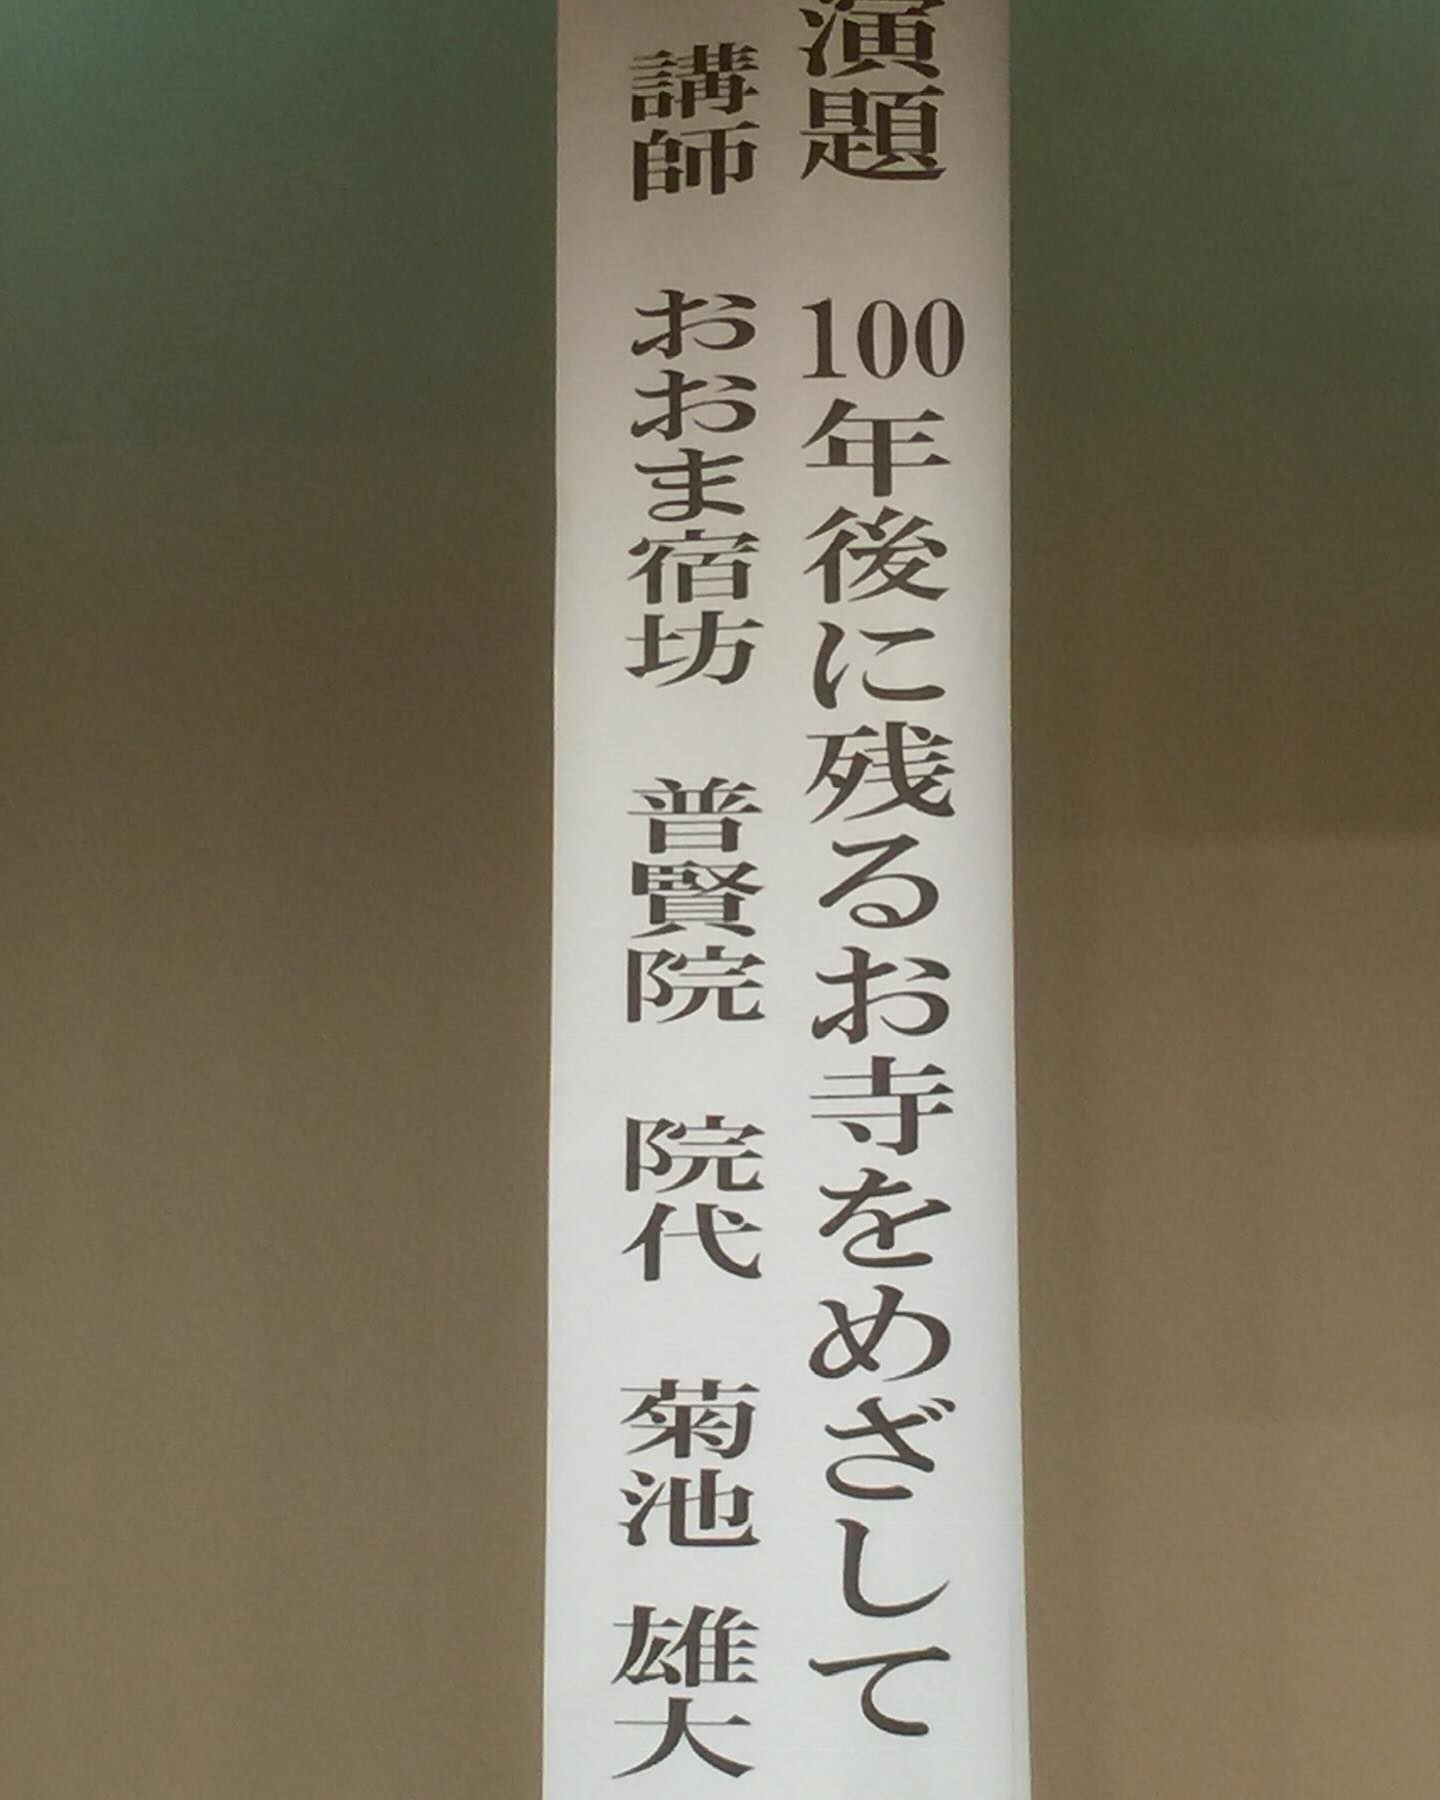 演題　100年後に残るお寺をめざして
講師　おおま宿坊　普賢院　院代　菊池　雄大